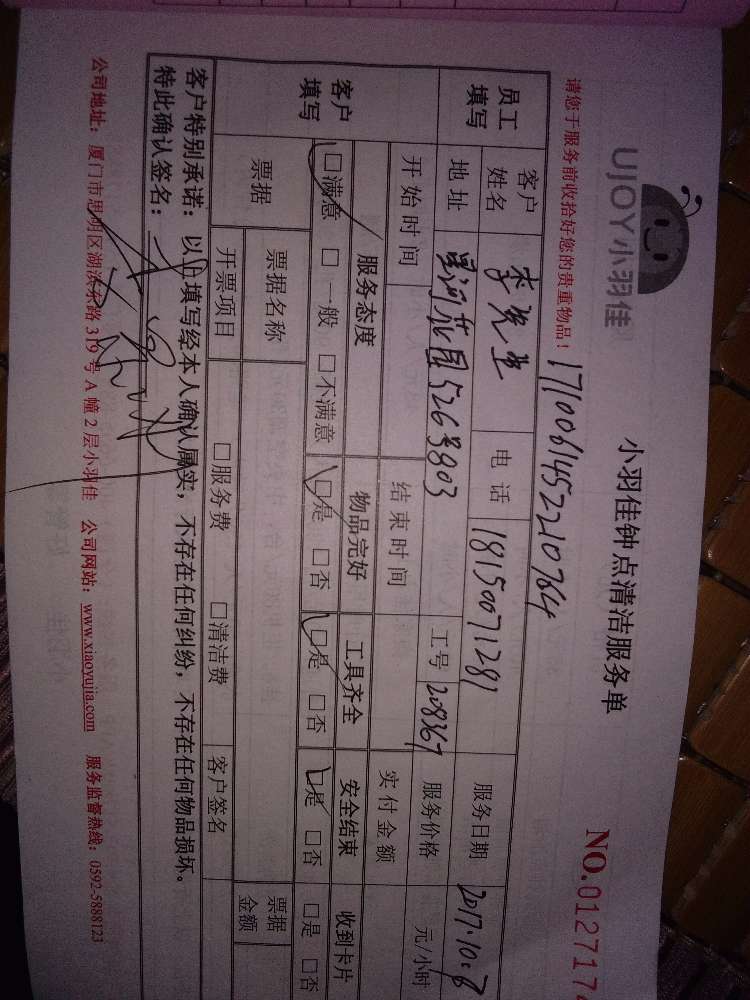 UJOY小羽佳
小羽佳钟点清洁服务单
NO.0127174
请您于服务前收拾好您的贵重物品！
17100614522 10764
员工填写 客户姓名 李先生 电话 18150071281 服务日期 2017.10.8
地址 星河花园526号803 工号 208367 服务价格 元/小时
开始时间 结束时间 实付金额
客户填写 服务态度 物品完好 工具齐全 安全结束 收到卡片
□满意 □一般 □不满意 □是 □否 □是 □否 □是 □否 □是 □否
票据 票据名称 票据金额
开票项目 □服务费 □清洁费 客户签名
客户特别承诺：以上填写经本人确认属实，不存在任何纠纷，不存在任何物品损坏。
特此确认签名：
公司地址：厦门市思明区湖滨东路319号A幢2层小羽佳 公司网站：www.xiaoyujia.com 服务监督热线：0592-5888123